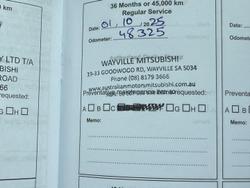 36 Months or 45,000 km
Regular Service
Date: 01 / 10 / 2025
Odometer: 48325
WAYVILLE MITSUBISHI
19-33 GOODWOOD RD, WAYVILLE SA 5034
Phone (08) 8179 3666
www.australianmotorsmitsubishi.com.au
Preventative
requested:
A B G H
Memo:
Y LTD T/A
BISHI
ROAD
3666
requested:
G H